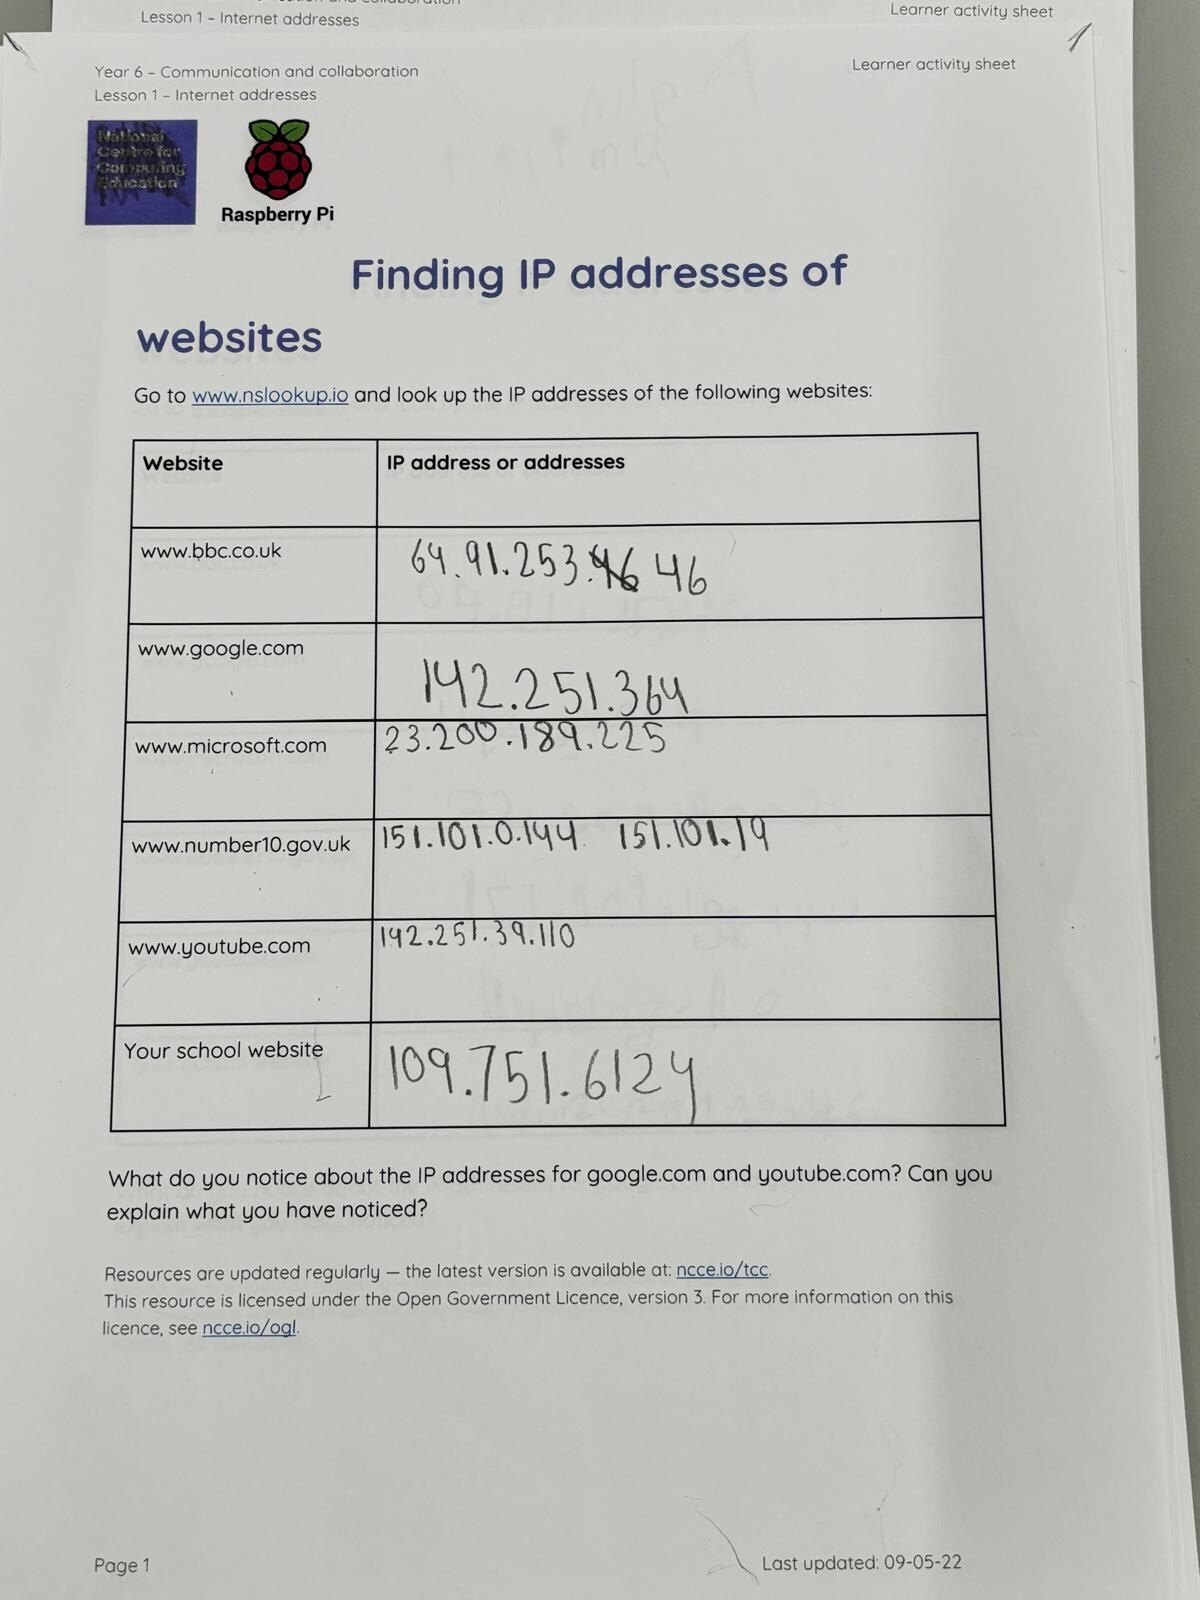 Lesson 1 – Internet addresses
Learner activity sheet
1
Year 6 – Communication and collaboration
Learner activity sheet
Lesson 1 – Internet addresses
National
Centre for
Computing
Education
Raspberry Pi
Finding IP addresses of
websites
Go to www.nslookup.io and look up the IP addresses of the following websites:
Website
IP address or addresses
www.bbc.co.uk
64.91.253.46 46
www.google.com
142.251.364
www.microsoft.com
23.200.189.225
www.number10.gov.uk
151.101.0.144. 151.101.19
www.youtube.com
142.251.39.110
Your school website
109.751.6124
What do you notice about the IP addresses for google.com and youtube.com? Can you
explain what you have noticed?
Resources are updated regularly — the latest version is available at: ncce.io/tcc.
This resource is licensed under the Open Government Licence, version 3. For more information on this
licence, see ncce.io/ogl.
Page 1
Last updated: 09-05-22